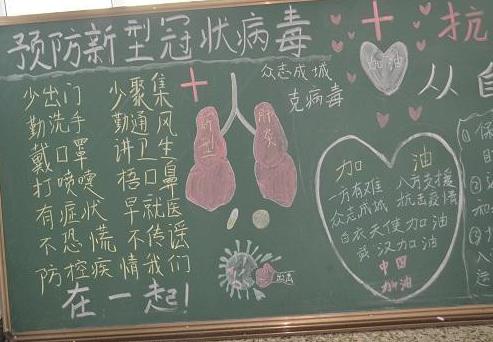 预防新型冠状病毒
少出门 少聚集
勤洗手 勤通风
戴口罩 讲卫生
打喷嚏 捂口鼻
有症状 早就医
不恐慌 不传谣
防控疾情我们
在一起!
众志成城
克病毒
新型
肝炎
加油
加 油
一方有难 八方支援
众志成城 抗击疫情
白衣天使 加油
武汉加油
中国
加油
抗
从自